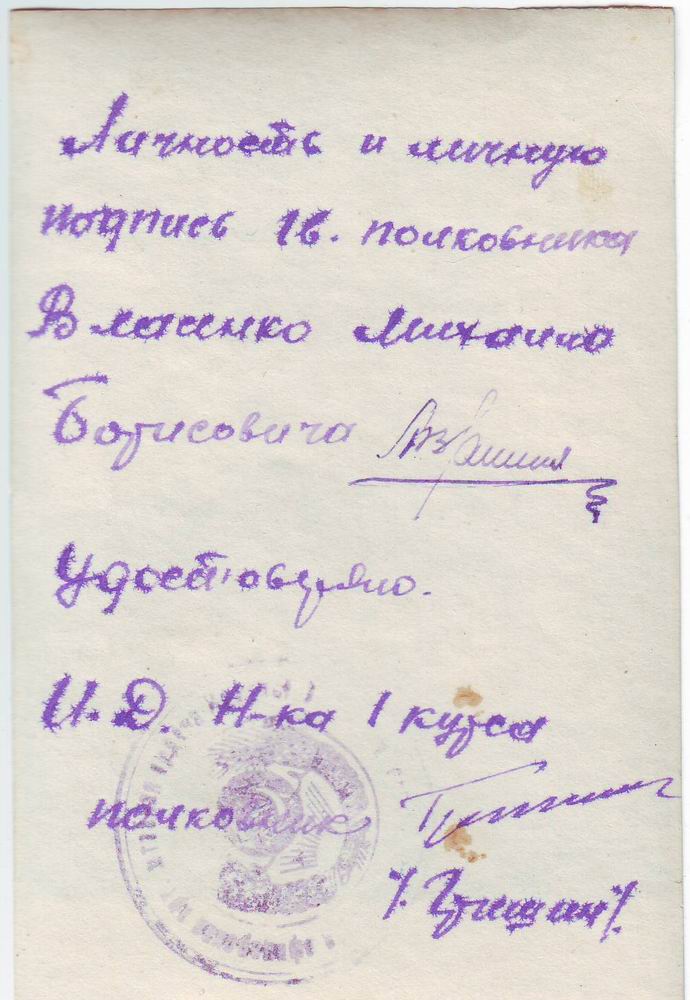 Личность и личную
подпись гв. полковника
Власенко Михаила
Борисовича
Удостоверяю.
И. Д. Н-ка 1 курса
полковник
/. Гришин/.